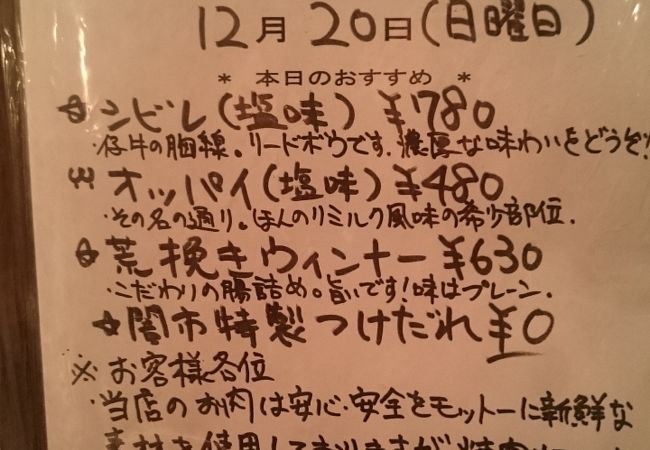 12月 20日(日曜日)
* 本日のおすすめ *
☆シビレ(塩味) ¥780
・仔牛の胸線。リードボウです。濃厚な味わいをどうぞ!
オッパイ(塩味) ¥480
・その名の通り。ほんのりミルク風味の希少部位.
☆荒挽きウィンナー ¥630
・こだわりの腸詰め。旨いです!味はプレーン.
☆闇市特製つけだれ ¥0
※お客様各位
・当店のお肉は安心・安全をモットーに新鮮な
素材を使用しておりますが